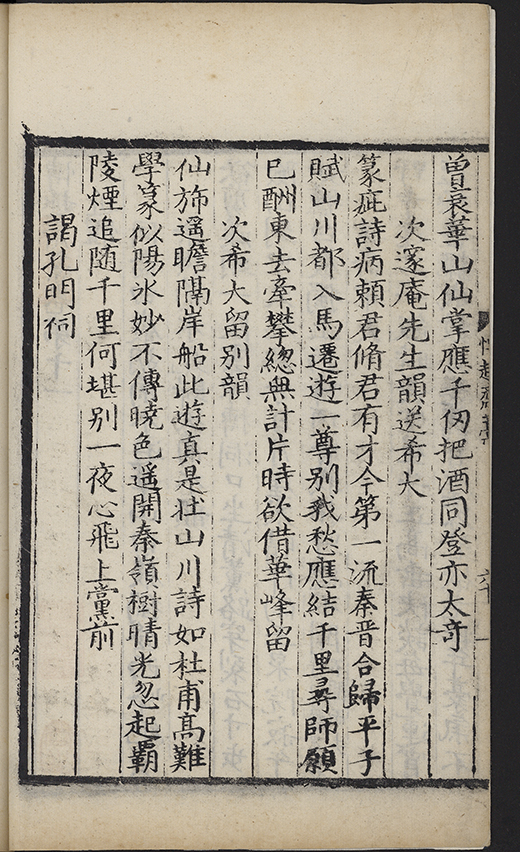 曾袤華山仙掌應千仭把酒同登亦太竒
次邃庵先生韻送希大
篆疵詩病頼君脩君有才今第一流秦晋合歸平子
賦山川都入馬遷遊一尊別我愁應結千里尋師願
已酬東去牽攀緫無計片時欲借華峰留
次希大留別韻
仙斾遥瞻隔岸船此遊真是壮山川詩如杜甫髙難
學篆似陽氷妙不傳曉色遥開秦嶺樹晴光忽起覇
陵煙追随千里何堪別一夜心飛上黨前
謁孔明祠
六十一